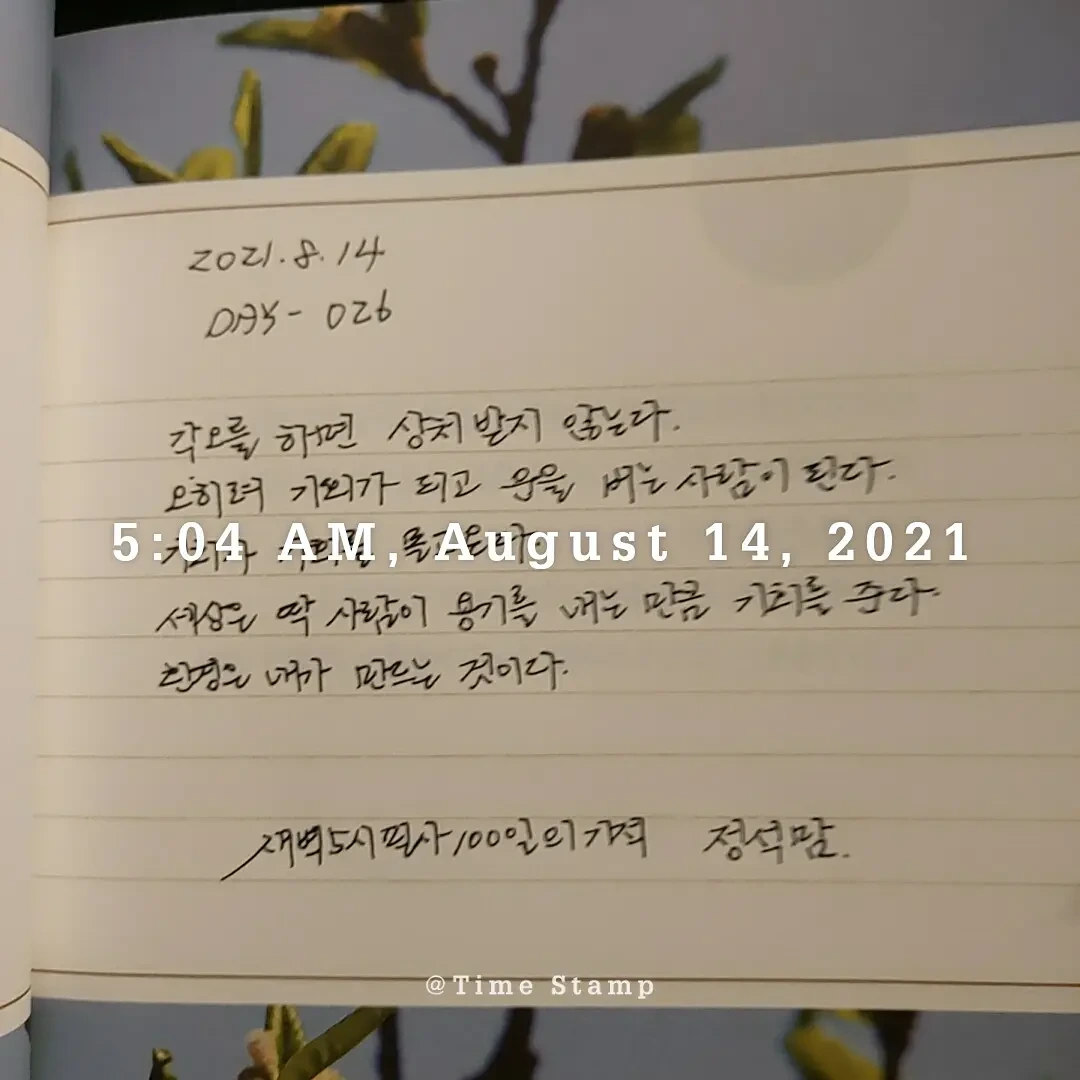 2021. 8. 14
DAY - 026
각오를 하면 상처 받지 않는다.
오히려 기회가 되고 운을 버는 사람이 된다.
5:04 AM, August 14, 2021
기회가 기회를 몰고온다.
세상은 딱 사람이 용기를 내는 만큼 기회를 준다.
환경은 내가 만드는 것이다.
새벽5시필사100일의기적 정석맘.
@Time Stamp